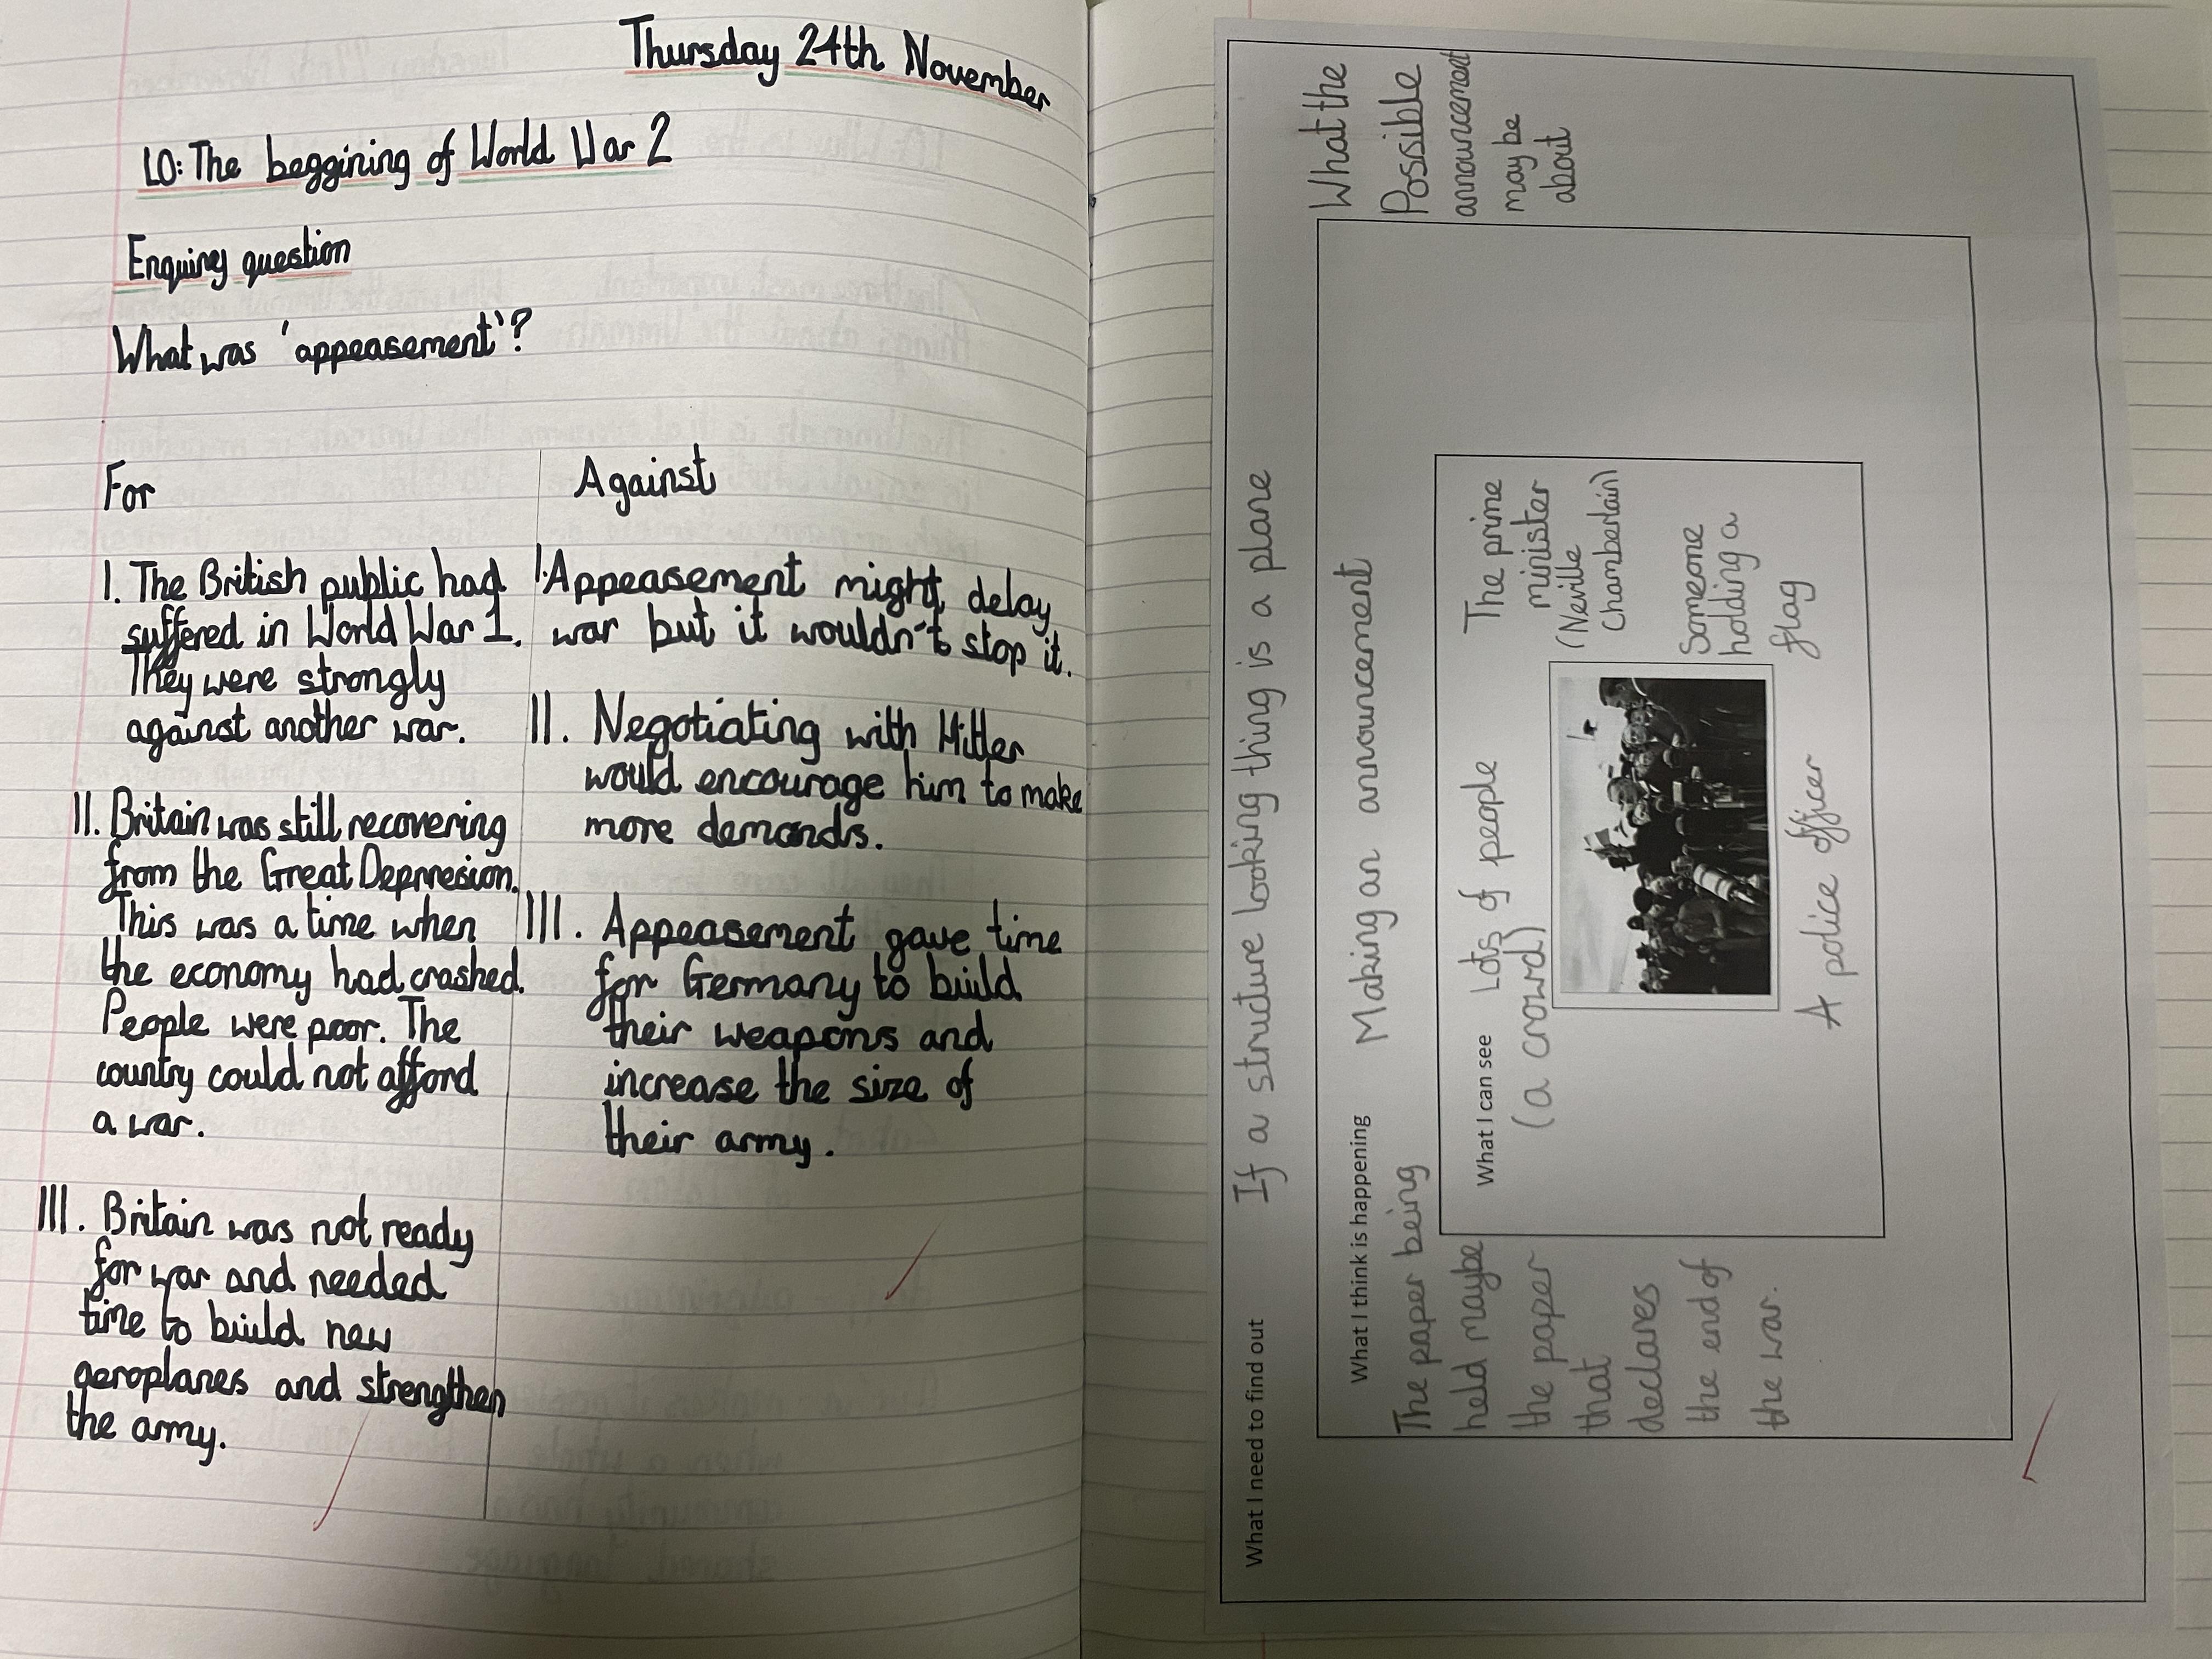 Thursday 24th November
LO: The beggining of World War 2
Enquirey question
What was 'appeasement'?
For
I. The British public had
suffered in World War 1.
They were strongly
against another war.
II. Britain was still recovering
from the Great Deprresion.
This was a time when
the economy had crashed.
People were poor. The
country could not afford
a war.
III. Britain was not ready
for war and needed
time to build new
aeroplanes and strengthen
the army.
Against
I. Appeasement might delay
war but it wouldn't stop it.
II. Negotiating with Hitler
would encourage him to make
more demands.
III. Appeasement gave time
for Germany to build
their weapons and
increase the size of
their army.
What I need to find out
If a structure looking thing is a plane
What the
Possible
announcement
may be
about
What I think is happening
Making an announcement
The paper being
held maybe
the paper
that
declares
the end of
the war.
What I can see
Lots of people
(a crowd)
The prime
minister
(Neville
Chamberlain)
Someone
holding a
flag
A police officer